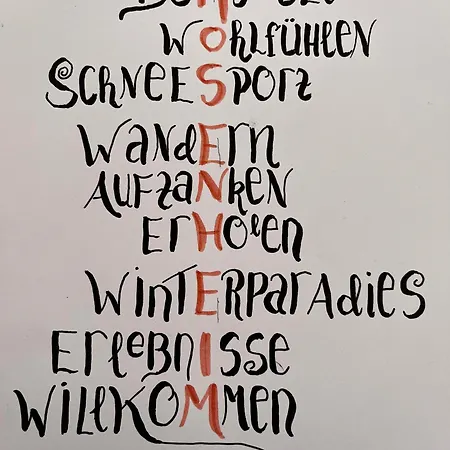 WOHlfüHlEN
SCHNEESport
WANdERN
AUFtaNKEN
ErHolEN
WiNTERparAdiES
ErlEBNISSE
WIllKOMMEN